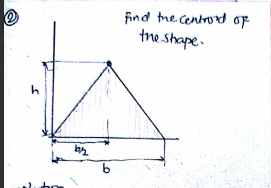 ② Find the centroid of
the shape.
h
b/2
b